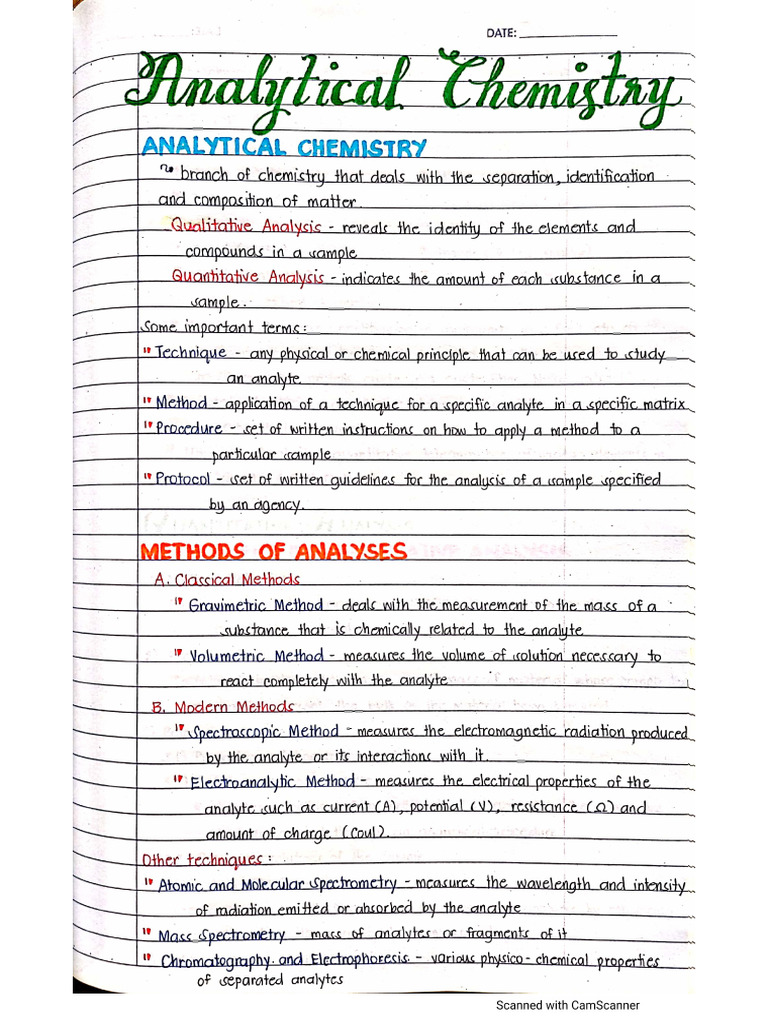 DATE:
Analytical Chemistry
ANALYTICAL CHEMISTRY
branch of chemistry that deals with the separation, identification
and composition of matter.
Qualitative Analysis - reveals the identity of the elements and
compounds in a sample
Quantitative Analysis - indicates the amount of each substance in a
sample.
Some important terms:
" Technique - any physical or chemical principle that can be used to study
an analyte.
" Method - application of a technique for a specific analyte in a specific matrix
" Procedure - set of written instructions on how to apply a method to a
particular sample
" Protocol - set of written guidelines for the analysis of a sample specified
by an agency.
METHODS OF ANALYSES
A. Classical Methods
" Gravimetric Method - deals with the measurement of the mass of a
substance that is chemically related to the analyte
" Volumetric Method - measures the volume of solution necessary to
react completely with the analyte
B. Modern Methods
" Spectroscopic Method - measures the electromagnetic radiation produced
by the analyte or its interactions with it.
" Electroanalytic Method - measures the electrical properties of the
analyte such as current (A), potential (V), resistance (Ω) and
amount of charge (Coul).
Other techniques:
" Atomic and Molecular Spectrometry - measures the wavelength and intensity
of radiation emitted or absorbed by the analyte
" Mass Spectrometry - mass of analytes or fragments of it
" Chromatography and Electrophoresis - various physico-chemical properties
of separated analytes
Scanned with CamScanner